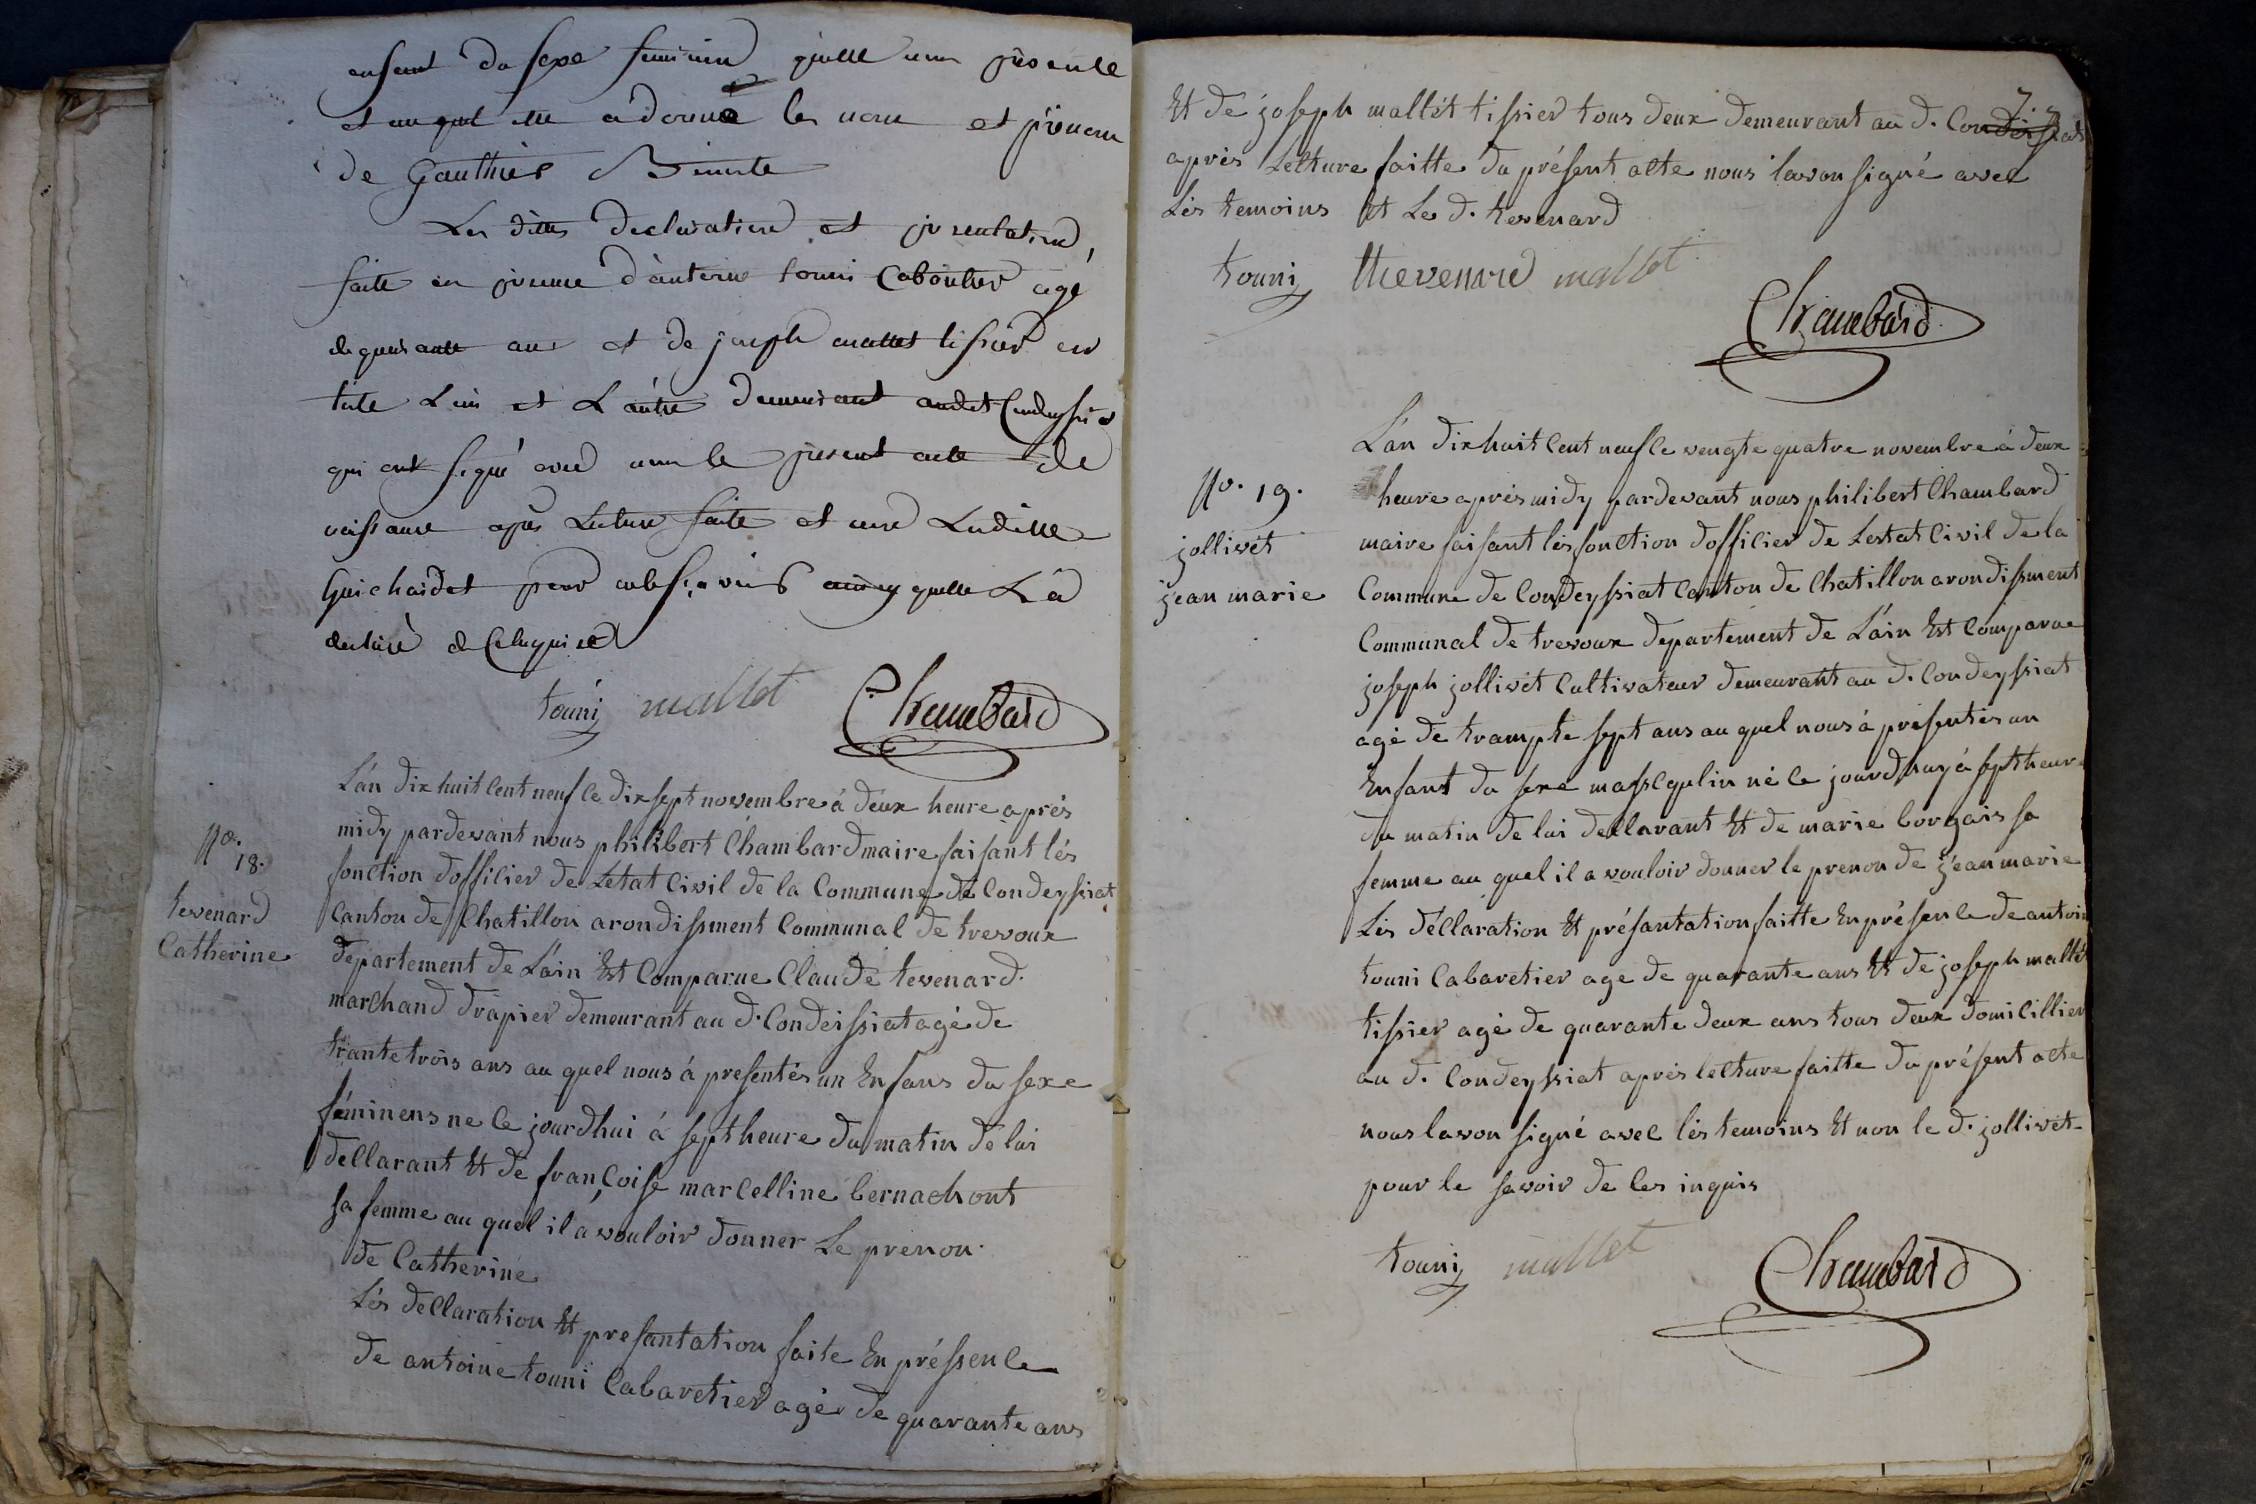 enfant du sexe feminin quelle nous presente
et auquel elle a donné les nom et prenom
de Gauthier Benoite
Les dittes declaration et presentation
faite en presence d'antoine touni Cabartier agé
de quarante ans et de joseph mallet tissier en
toile L'un et L'autre demeurant audit Condeyssiat
qui ont signé avec nous le present acte de
naissance après Lecture faite et non Laditte
Guichardet pour ne savoir ainsy quelle L'a
declaré de Ce enquise
touni mallet Chambard
No.
18.
tevenard
Catherine
L'an dix huit Cent neuf le dix sept novembre à deux heure après
midy pardevant nous philibert Chambard maire faisant lés
fonction dofficier de Letat Civil de la Commune de Condeyssiat
Canton de Chatillon arondissment Communal de trevoux
departement de L'ain Est Comparue Claude tevenard.
marchand drapier demeurant au d. Condeissiat agé de
trante trois ans au quel nous à presentés un Enfans du sexe
féminens ne le jourdhui à sept heure du matin de lui
declarant Et de françoise marcelline bernachont
sa femme au quel il à vouloir donner Le prenon.
de Catherine
Lés declaration Et presantation faite En préssence
de antoine touni Cabaretier agé de quarante ans
7.
Et de joseph mallét tissier tous deux demeurant au d. Condeissiat
après Lecture faitte du présent acte nous lavon signé avec
Lés temoins Et Le d. tevenard
touni thevenard mallet
Chambard
No. 19.
jollivét
jean marie
L'an dix huit Cent neuf le vengte quatre novembre à deux
heure après midy pardevant nous philibert Chambard
maire faisant lés fonction dofficier de Lestat Civil de la
Commune de Condeyssiat Canton de Chatillon arondissment
Communal de trevoux departement de L'ain Est Comparue
joseph jollivét Cultivateur demeurant au d. Condeyssiat
agé de trampte sept ans au quel nous à présentés un
Enfant du sexe masscqulin né le jourdhuy à septheure
du matin de lui declarant Et de marie borgais sa
femme au quel il a vouloir donner le prenon de jean marie
Lés déclaration Et présantation faitte En présence de antoine
touni Cabaretier age de quarante ans Et de joseph mallét
tissier agé de quarante deux ans tous deux domicillier
au d. Condeyssiat après lecture faitte du présent acte
nous lavon signé avec lés temoins Et non le d. jollivét
pour le savoir de les inquis
touni mallet Chambard